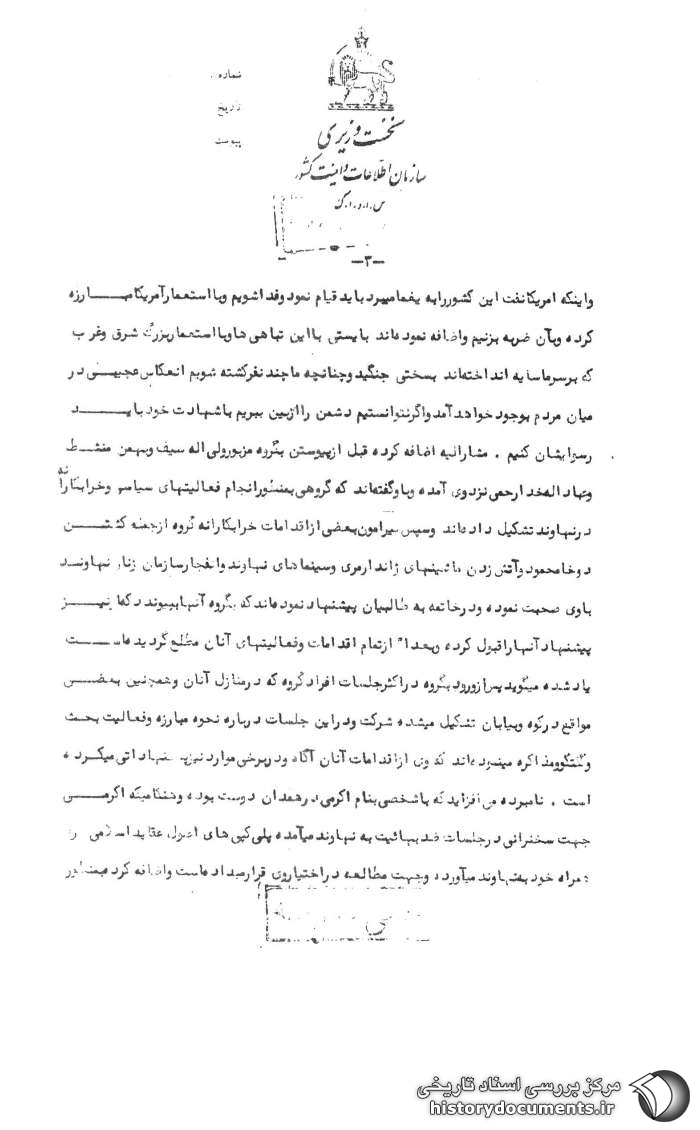 شماره
تاریخ
پیوست
نخست وزیری
سازمان اطلاعات و امنیت کشور
س.ا.و.ا.ک
-۳-
واینکه امریکانفت این کشوررابه یغمامیبرد باید قیام نمود وفداشویم وبااستعمارآمریکامبارزه
کرده وبآن ضربه بزنیم واضافه نموده‌اند بایستی بااین تباهی هاوبااستعماربزرگ شرق وغرب
که برسرماسایه انداخته‌اند بسختی جنگید وچنانچه ماچند نفرکشته شویم انعکاس عجیبی در
میان مردم بوجود خواهد آمد واگرنتوانستیم دشمن راازبین ببریم باشهادت خود باید
رسوایشان کنیم . مشارالیه اضافه کرده قبل ازپیوستن بگروه مزبورولی اله سیف وبهمن منشط
وعباد اله خدارحمی نزدوی آمده وباوگفته‌اند که گروهی بمنظورانجام فعالیتهای سیاسی وخرابکارانه
درنهاوند تشکیل داده‌اند وسپس پیرامون بعضی ازاقدامات خرابکارانه گروه ازجمله کشتن
دوخامحمود وآتش زدن ماشینهای ژاندارمری وسینماهای نهاوند وانفجارسازمان زنان نهاوند
باوی صحبت نموده ودرخاتمه به طالبیان پیشنهاد نموده‌اند که بگروه آنها بپیوندد که نیز
پیشنهاد آنهاراقبول کرده وبعدا" ازتمام اقدامات وفعالیتهای آنان مطلع گردیده‌است
یادشده میگوید پس ازورود بگروه دراکثرجلسات افرادگروه که درمنازل آنان وهمچنین بعضی
مواقع درکوه وبیابان تشکیل میشده شرکت ودراین جلسات درباره نحوه مبارزه وفعالیت بحث
وگفتگوومذاکره مینموده‌اند که وی ازاقدامات آنان آگاه ودربرخی موارد نیزپیشنهاداتی میکرده
است . نامبرده می افزاید که باشخصی بنام اکرمی درهمدان دوست بوده وهنگامیکه اکرمی
جهت سخنرانی درجلسات ضدبهائیت به نهاوند میآمده پلی کپی های اصول عقاید اسلامی را
همراه خود بنهاوند میآورده وجهت مطالعه دراختیاروی قرارمیداده‌است واضافه کرده بمنظور
مرکز بررسی اسناد تاریخی
historydocuments.ir